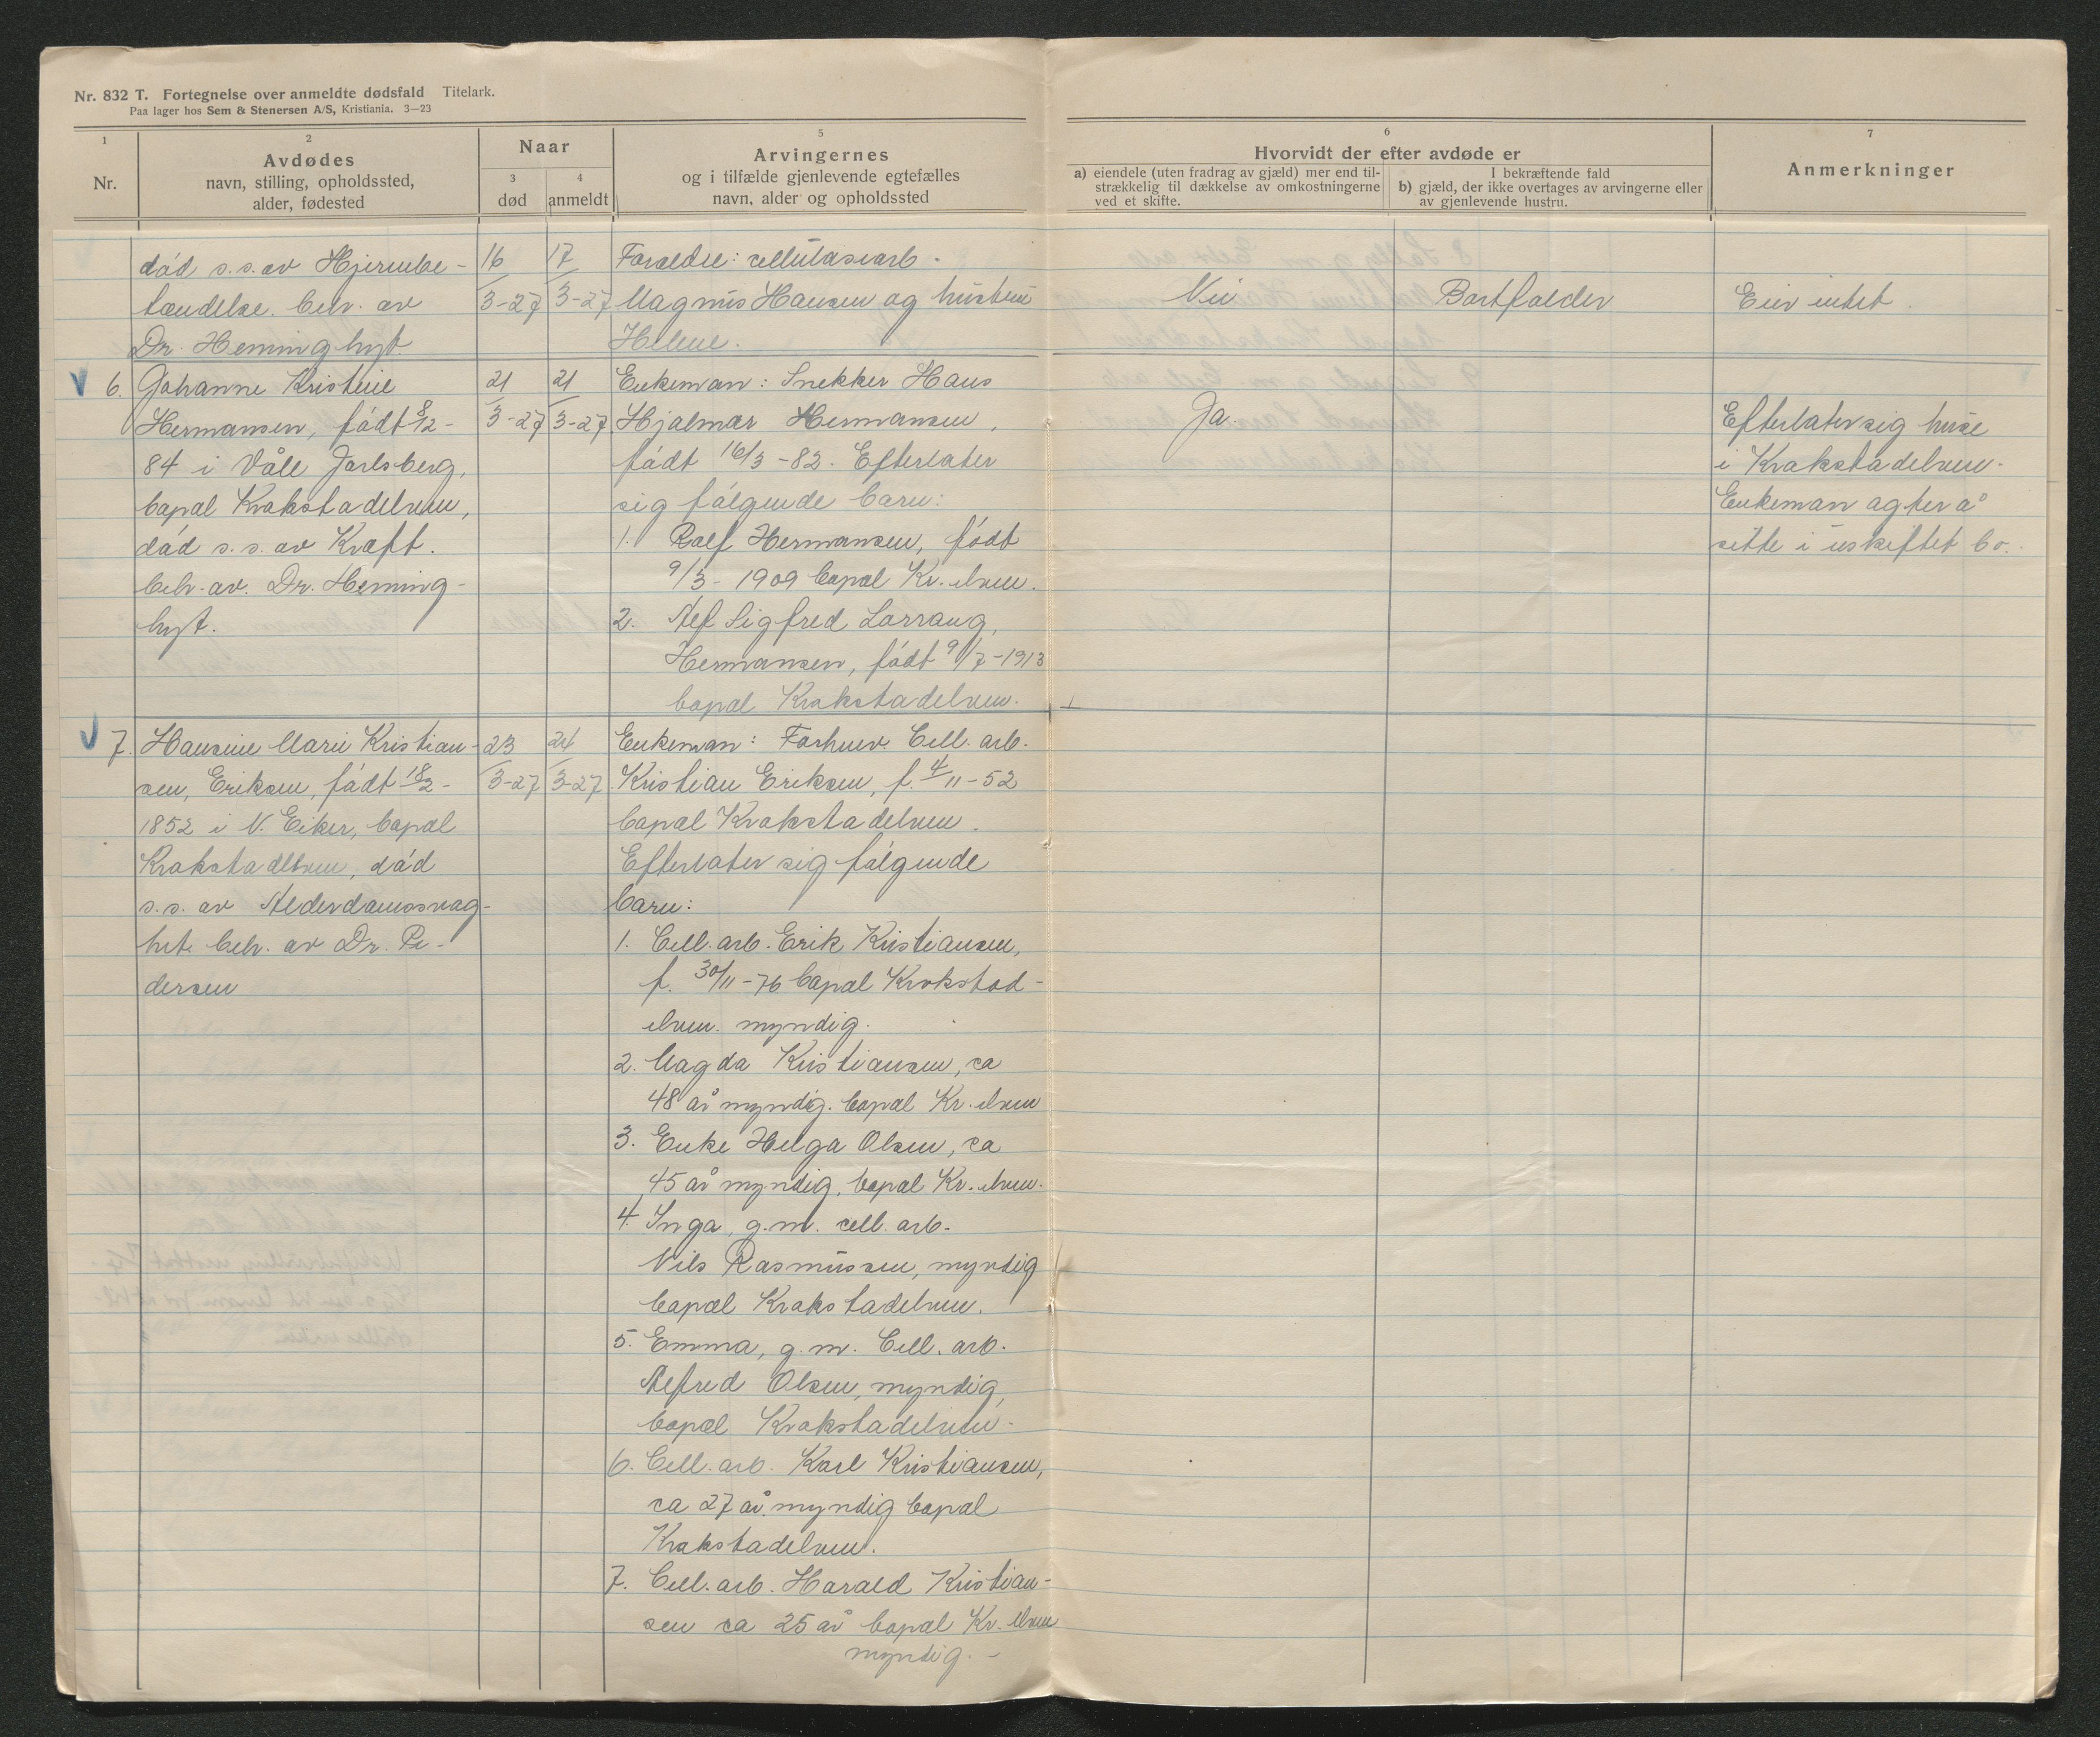 Nr. 832 T. Fortegnelse over anmeldte dødsfald Titelark.
Paa lager hos Sem & Stenersen A/S, Kristiania. 3—23
1
Nr.
2
Avdødes
navn, stilling, opholdssted,
alder, fødested
Naar
3
død
4
anmeldt
5
Arvingernes
og i tilfælde gjenlevende egtefælles
navn, alder og opholdssted
6
Hvorvidt der efter avdøde er
a) eiendele (uten fradrag av gjæld) mer end til-
strækkelig til dækkelse av omkostningerne
ved et skifte.
I bekræftende fald
b) gjæld, der ikke overtages av arvingerne eller
av gjenlevende hustru.
7
Anmerkninger
død s.s. av Hjernebe-
tændelse. beh. av
Dr. Heminghyt.
16/3-27
17/3-27
Forældre: cellulosearb.
Magnus Hansen og hustru
Helene.
Nei
Bortfalder
Eier intet.
V 6.
Johanne Kristine
Hermansen, født 8/12-
84 i Våle Jarlsberg,
bopæl Krokstadelven,
død s.s. av Kræft.
beh. av. Dr. Heming-
hyt.
21/3-27
21/3-27
Enkeman: Snekker Hans
Hjalmar Hermansen,
født 16/3-82. Efterlater
sig følgende barn:
1. Rolf Hermansen, født
9/3-1909 bopæl Kr. elven.
2. Alf Sigfred Lorrang,
Hermansen, født 9/7-1913
bopæl Krokstadelven.
Ja.
Efterlater sig huse
i Krokstadelven.
Enkeman agter å
sitte i uskiftet bo.
V 7.
Hansine Marie Kristian-
sen, Eriksen, født 18/2-
1852 i N. Eiker, bopæl
Krokstadelven, død
s.s. av Alderdomssvag-
het. beh. av Dr. Pe-
dersen
23/3-27
24/3-27
Enkeman: Forhenv. Cell. arb.
Kristian Eriksen, f. 4/11-52
bopæl Krokstadelven.
Efterlater sig følgende
barn:
1. Cell. arb. Erik Kristiansen,
f. 30/11-76 bopæl Krokstad-
elven. myndig.
2. Magda Kristiansen, ca
48 år myndig. bopæl Kr. elven
3. Enke Helga Olsen, ca
45 år myndig, bopæl Kr. elven.
4. Inga, g.m. cell. arb.
Nils Rasmussen, myndig
bopæl Krokstadelven.
5. Emma, g.m. Cell. arb.
Alfred Olsen, myndig,
bopæl Krokstadelven.
6. Cell. arb. Karl Kristiansen,
ca 27 år. myndig bopæl
Krokstadelven.
7. Cell. arb. Harald Kristian-
sen ca 25 år bopæl Kr. elven
myndig. -